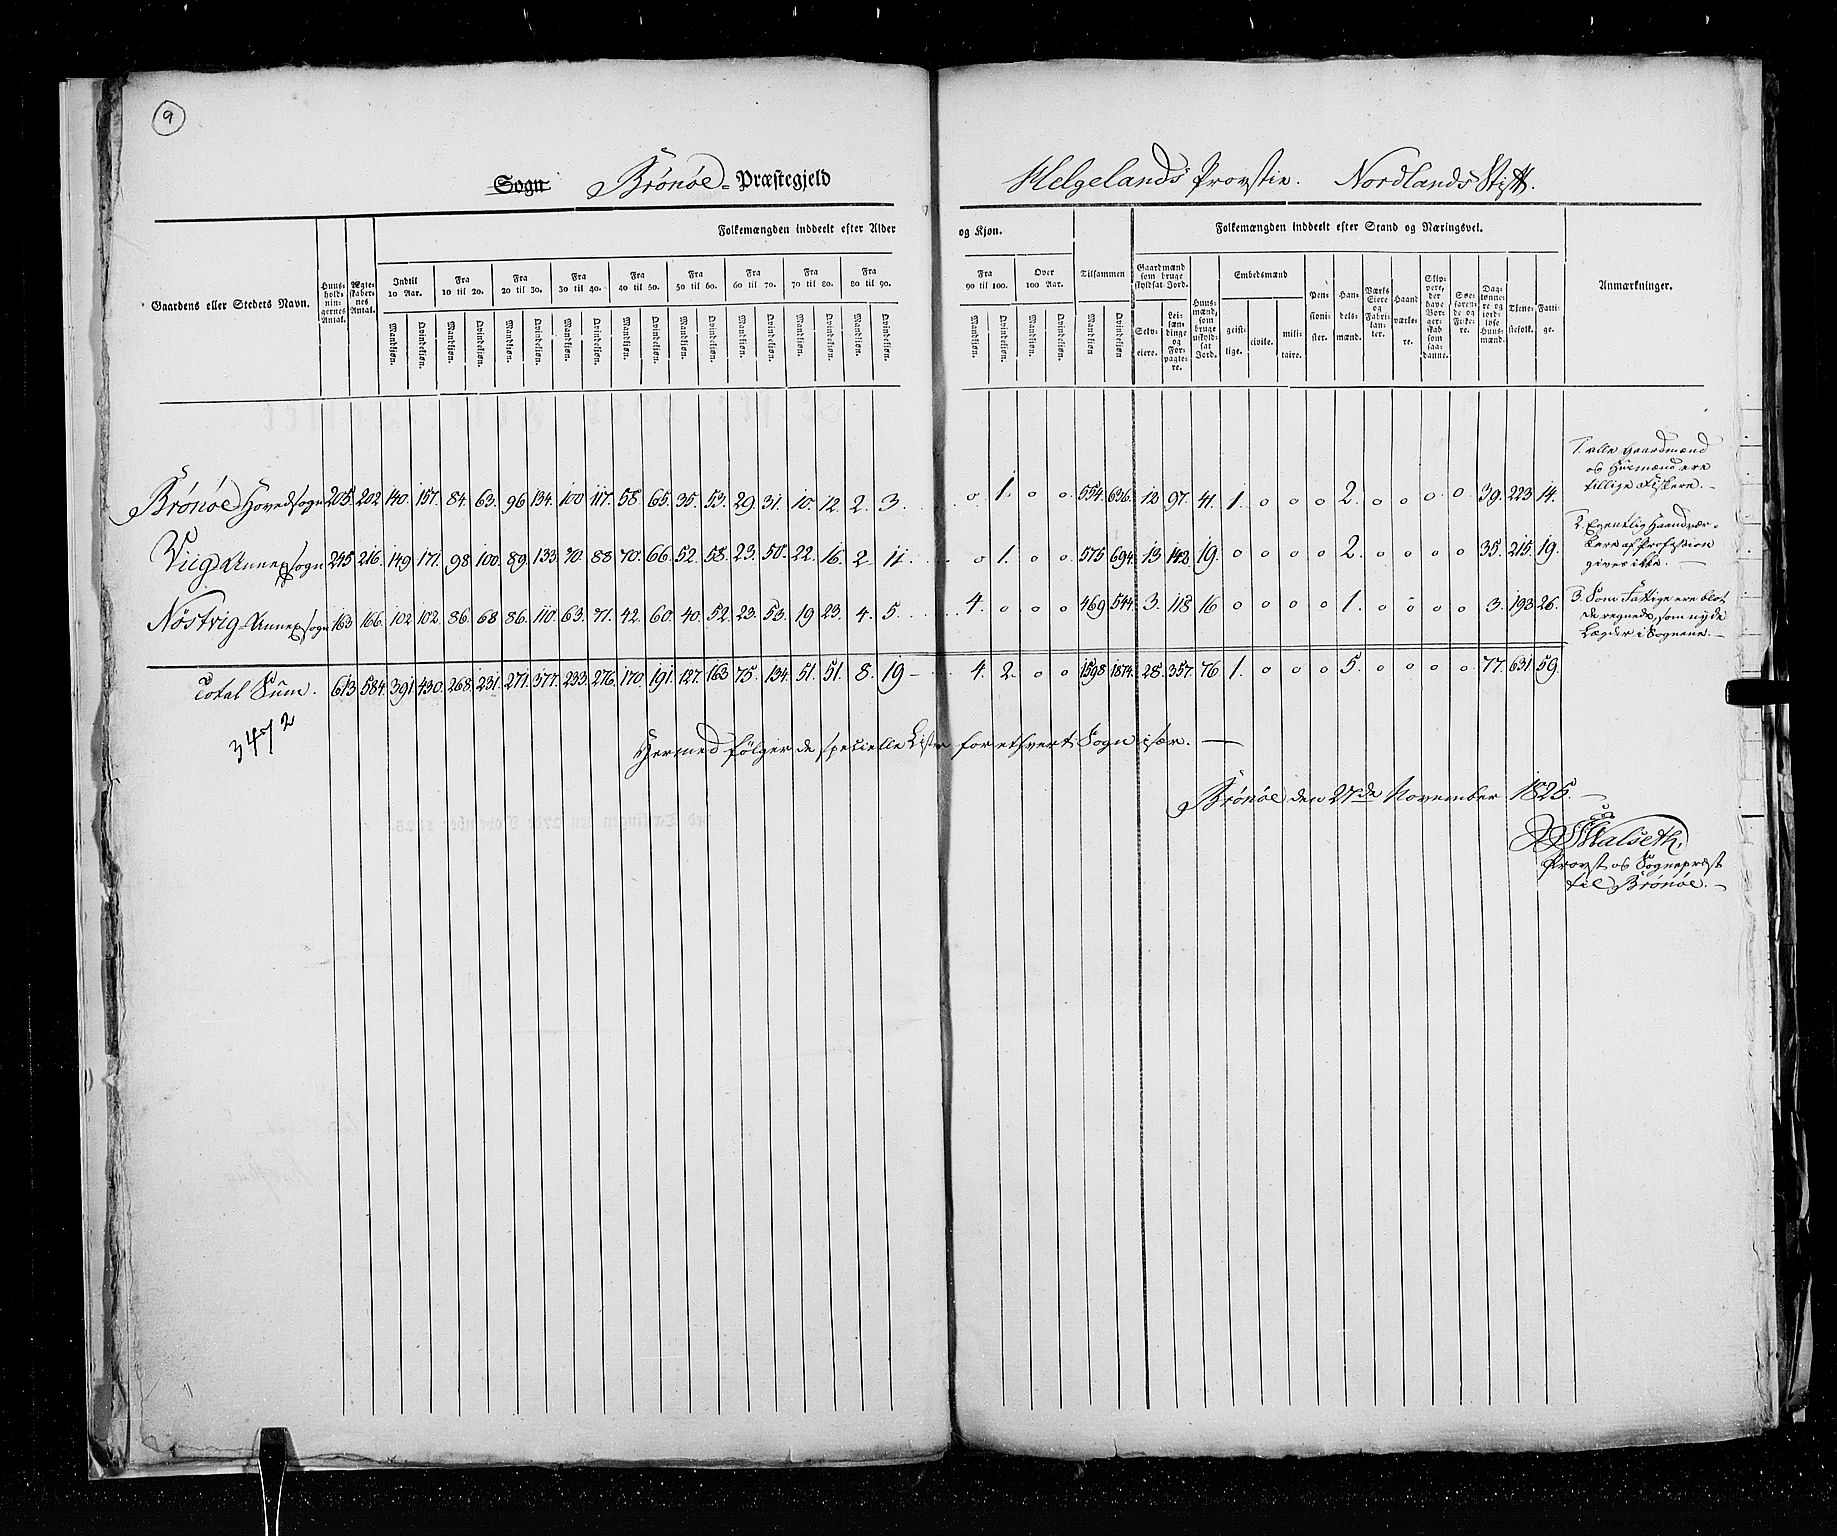 9
Sogn Brönöe=Præstegjeld Helgelands Provstie. Nordlands Stift.
Folkemængden inddeelt efter Alder og Kjøn. Folkemængden inddeelt efter Stand og Næringsvei.
Gaardens eller Stedets Navn. Huus-hold-nin-gernes Antal. Ægte-skaber-nes Antal. Indtil 10 Aar. Fra 10 til 20. Fra 20 til 30. Fra 30 til 40. Fra 40 til 50. Fra 50 til 60. Fra 60 til 70. Fra 70 til 80. Fra 80 til 90. Fra 90 til 100. Over 100 Aar. Tilsammen Gaardmænd som bruge skyldsat Jord. Huus-mænd, som bruge uskyld-sat Jord. Embedsmænd Pen-sioni-ster. Han-dels-mænd. Værks Eiere og Fabri-kan-ter. Haand-værke-re. Skip-pere, der have Bor-ger-skab som saa-danne. Søe-faren-de og Fiske-re. Dag-lønne-re og jord-løse Huus-mænd. Tjene-stefolk. Fatti-ge. Anmærkninger.
Mandkjøn. Qvindekjøn. Mandkjøn. Qvindekjøn. Mandkjøn. Qvindekjøn. Mandkjøn. Qvindekjøn. Mandkjøn. Qvindekjøn. Mandkjøn. Qvindekjøn. Mandkjøn. Qvindekjøn. Mandkjøn. Qvindekjøn. Mandkjøn. Qvindekjøn. Mandkjøn. Qvindekjøn. Mandkjøn. Qvindekjøn. Mandkjøn Qvindekjøn Selv-eiere. Lei-læn-dinge og For-pagte-re. geist-lige. civile. mili-taire.
Brönöe Hovedsogn 205. 202 140. 157. 84. 63. 96 134. 100 117. 58 65. 35. 53. 29. 31. 10. 12. 2. 3. 0. 1. 0 0 554. 636. 12 97. 41. 1. 0 0 0 2. 0 0 0 0. 39. 223 14.
Viig Annexsogn 245 216. 149 171. 98 100. 89. 133. 70. 88 70. 66. 52. 58. 23. 50. 22. 16. 2. 11. 0 1. 0 0 575 694. 13 142 19. 0 0 0 0 2. 0 0 0 0 35. 215. 19.
Nöstvig Annexsogn 163 166. 102 102. 86. 68 86. 110. 63. 71. 42. 60. 40. 52. 23. 53. 19 23. 4. 5. 4. 0 0 0 469 544. 3. 118 16 0 0 0 0 1. 0 0 0 0 3. 193 26.
Total Sum. 613 584. 391 430. 268. 231. 271. 377. 233. 276. 170. 191. 127. 163 75. 134. 51. 51. 8. 19 4. 2. 0 0 1598 1874. 28. 357. 76 1. 0 0 0 5. 0 0 0 0 77. 631 59.
1. Alle Gaardmænd
og Huusmænd ere
tillige Fiskere.
2. Egentlig Haandvær=
kere af Profession
gives ikke.
3. Som Fattige ere blot
de regnede, som nyde
Lægder i Sognene.
3472
Hermed følger de specielle Lister for ethvert Sogn især.
Brönöe den 27de November 1825.
Walseth,
Provst og Sognepræst
til Brönöe.